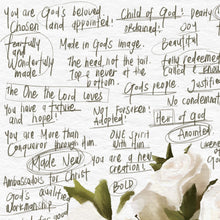 you are God's beloved. Child of God: Dearly
Chosen and appointed! redeemed: Joy
Fearfully and Wonderfully made! Made in God's image. Beautiful
The head not the tail. fully redeemed
Top & never the bottom. Called & known
The One the Lord loves God's people. Justified
you have a future and hope! Not Forsaken: adopted! No condemn
Heir of God
you are More than Conqueror through Him. ONE Spirit with Him Anointed
Made New you are a new creation:
Ambassadors for Christ
God's
Workmanship BOLD
for good